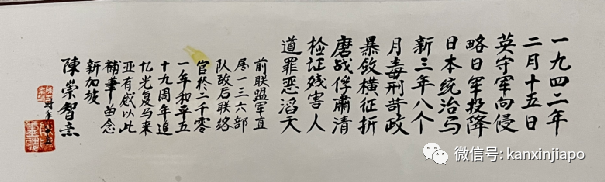 一九四二年
二月十五日
英守军向侵
略日军投降
日本统治马
新三年八个
月毒刑苛政
暴敛横征折
磨战俘肃清
检证残害人
道罪恶滔天
前联盟军直
属一三六部
队政后联络
官於二千零
一年和平五
十九周年追
忆光复马来
亚有感以此
補筆留念
新加坡
陳崇智
微信号: kanxinjiapo